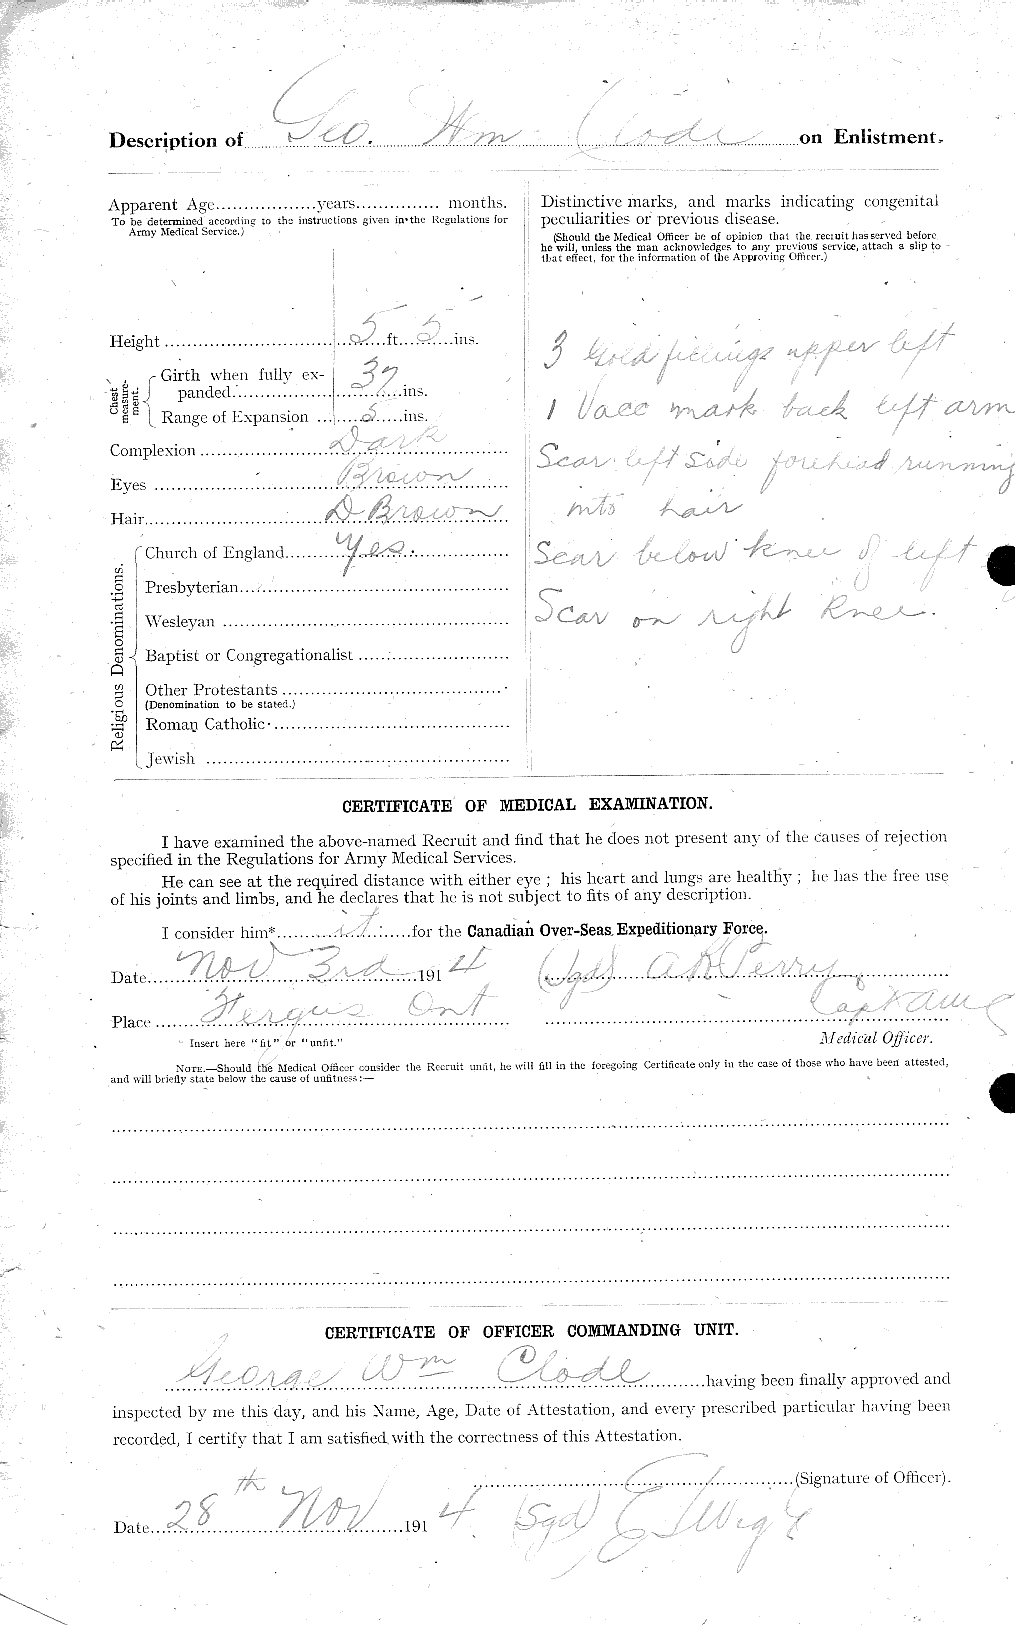 Description of Geo. Wm Clode on Enlistment.
Apparent Age................years.............. months.
To be determined according to the instructions given in the Regulations for
Army Medical Service.)
Height ................ 5 ft. 5 ins.
Chest measure-ment.
Girth when fully ex-
panded................ 37 ins.
Range of Expansion ... 3 ins.
Complexion ................ Dark
Eyes ................ Brown
Hair................ D Brown
Religious Denominations.
Church of England........ Yes.
Presbyterian................
Wesleyan ................
Baptist or Congregationalist ................
Other Protestants ................
(Denomination to be stated.)
Roman Catholic................
Jewish ................
Distinctive marks, and marks indicating congenital
peculiarities or previous disease.
(Should the Medical Officer be of opinion that the recruit has served before
he will, unless the man acknowledges to any previous service, attach a slip to
that effect, for the information of the Approving Officer.)
3 Gold fillings upper left
1 Vacc mark back left arm
Scar left side forehead running
into hair
Scar below knee of left
Scar on right knee.
CERTIFICATE OF MEDICAL EXAMINATION.
I have examined the above-named Recruit and find that he does not present any of the causes of rejection
specified in the Regulations for Army Medical Services.
He can see at the required distance with either eye ; his heart and lungs are healthy ; he has the free use
of his joints and limbs, and he declares that he is not subject to fits of any description.
I consider him*........ it ....for the Canadian Over-Seas Expeditionary Force.
Date.. Nov 3rd ....191 4 (Sgd) A R Perry
Place .... Fergus Ont Capt AMC
Medical Officer.
* Insert here "fit" or "unfit."
NOTE.—Should the Medical Officer consider the Recruit unfit, he will fill in the foregoing Certificate only in the case of those who have been attested,
and will briefly state below the cause of unfitness :—
CERTIFICATE OF OFFICER COMMANDING UNIT.
George Wm Clode ........having been finally approved and
inspected by me this day, and his Name, Age, Date of Attestation, and every prescribed particular having been
recorded, I certify that I am satisfied with the correctness of this Attestation.
................(Signature of Officer).
Date.. 28th Nov ....191 4. (Sgd)